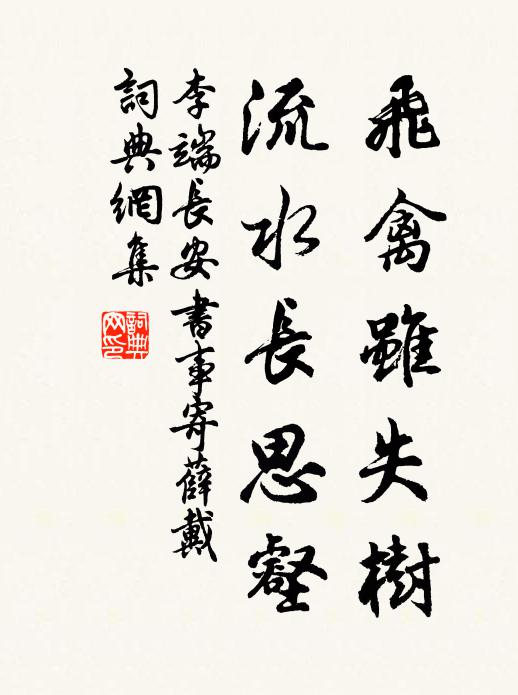 飛禽雖失樹
流水長思壑
李端長安書事寄薛戴
詞典網集
詞典
网印